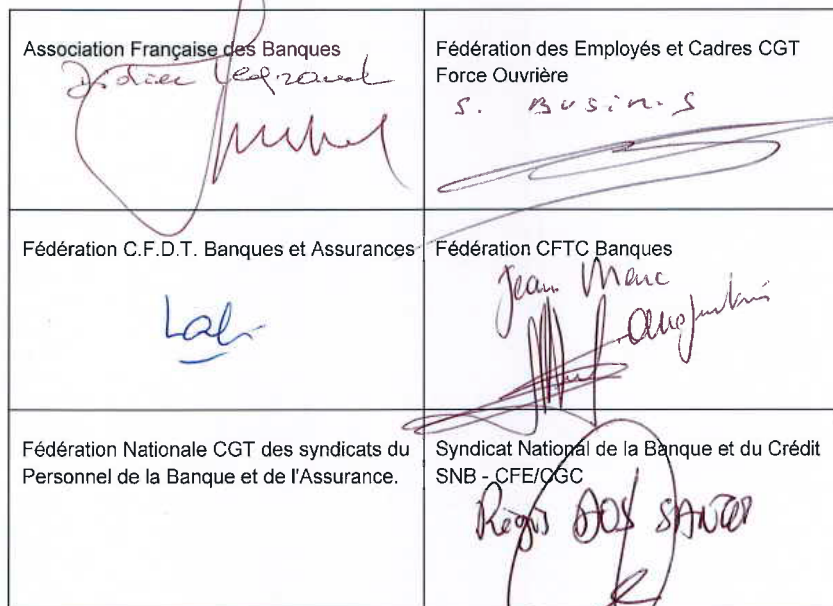 Association Française des Banques
Didier Legrand
Fédération des Employés et Cadres CGT
Force Ouvrière
S. Busin.s
Fédération C.F.D.T. Banques et Assurances
Fédération CFTC Banques
Jean Marc
Fédération Nationale CGT des syndicats du
Personnel de la Banque et de l'Assurance.
Syndicat National de la Banque et du Crédit
SNB - CFE/CGC
Régis DOS SANTOS